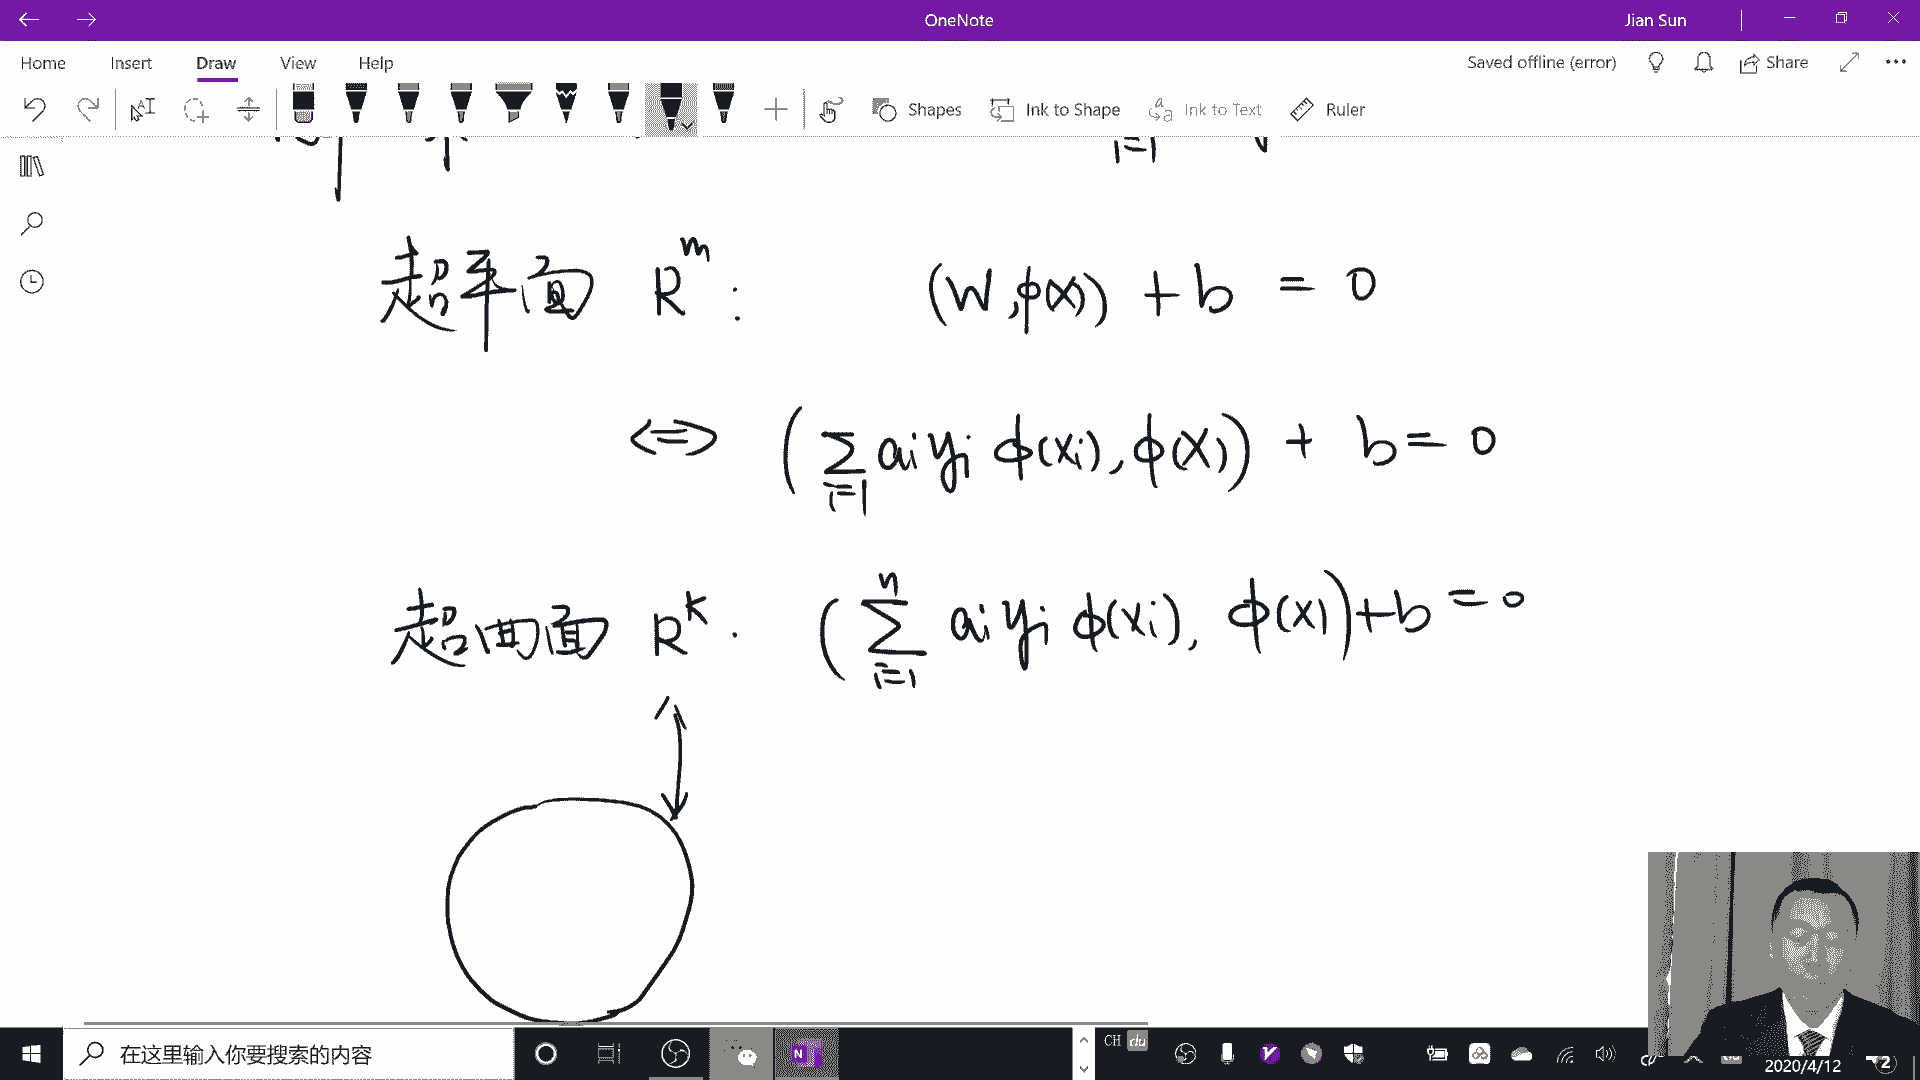 OneNote
Jian Sun
Home Insert Draw View Help
Saved offline (error)
Share
Shapes
Ink to Shape
Ink to Text
Ruler
i=1
超平面 R^m : (W, φ(x)) + b = 0
⇔ (∑_{i=1} a_i y_i φ(x_i), φ(x)) + b = 0
超曲面 R^k . (∑_{i=1}^n a_i y_i φ(x_i), φ(x)) + b = 0
在这里输入你要搜索的内容
CH du
2020/4/12
2